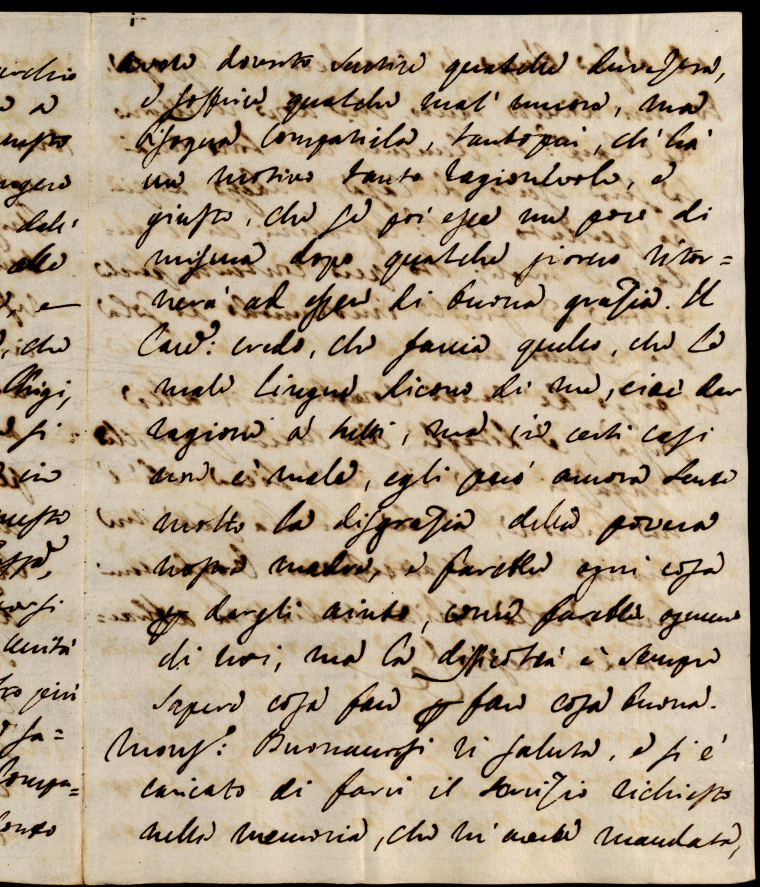 archio
avete dovuto sentire qualche durezza,
e soffrire qualche mal' umore, ma
bisogna compatirla, tanto più, ch' hà
un motivo tanto ragionevole, e
giusto, che se poi esce un poco di
misura dopo qualche giorno ritor=
nerà ad essere di buona grazia. Il
Card.: credo, che faccia quello, che le
male lingue dicono di me, cioè dar
ragione a tutti, ma in certi casi
non è male, egli però ancora sente
molto la disgrazia della povera
nostra madre, e farebbe ogni cosa
p dargli aiuto, come farebbe ognuno
di noi, ma la difficoltà è sempre
sapere cosa fare p fare cosa buona.
Mons.: Buonaccorsi vi saluta, e si è
caricato di farvi il servizio richiesto
nella memoria, che mi avete mandata,
che
Chigi,
si
in